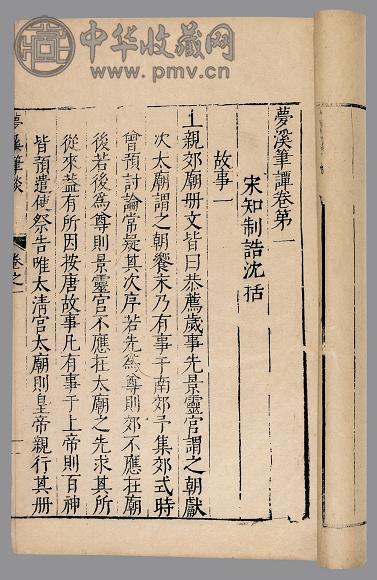 中华收藏网
www.pmv.cn
夢溪筆譚卷第一
宋知制誥沈括
故事一
上親郊廟册文皆曰恭薦歲事先景靈宮謂之朝獻
次太廟謂之朝饗末乃有事于南郊予集郊式時
曾預討論常疑其次序若先爲尊則郊不應在廟
後若後爲尊則景靈宮不應在太廟之先求其所
從來蓋有所因按唐故事凡有事于上帝則百神
皆預遣使祭告唯太清宮太廟則皇帝親行其册
夢溪筆談
卷之一